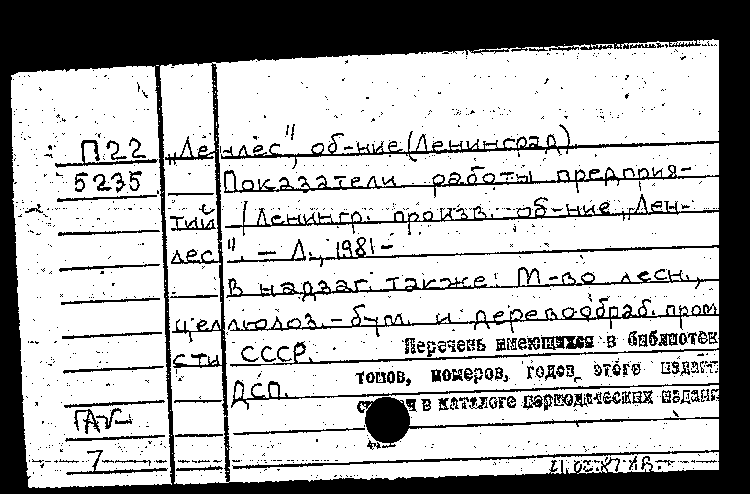 П22 „Ленлес", об-ние (Ленинград)
5235 Показатели работы предприя-
тий / Ленингр. произв. об-ние „Лен-
лес". — Л., 1981 –
В надзаг. также: М-во лесн.,
целлюлоз.-бум. и деревообраб. пром
сти СССР. Перечень имеющихся в библиотек
ДСП. томов, номеров, годов этого издан
в каталоге периодических издани
7